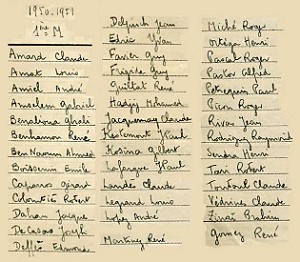 1950-1951
1ère M
Amard Claude
Amat Louis
Amiel André
Amselem Gabriel
Benaliona Ghali
Benhamon René
Ben Naoum Ahmed
Boissenin Emile
Caparros Gérard
Colonités Robert
Dahan Jacques
De Casas Joseph
Delfis Edmond
Delpuech Jean
Edric Yvan
Favier Guy
Frigide Guy
Guittat René
Hadjij Mohamed
Jacquemay Claude
Kestemont JPaul
Kosina Gilbert
Lafargue JPaul
Landes Claude
Legrand Louis
Lopez André
Martinez René
Miché Roger
Ortega Henri
Pascal Roger
Pastor Alfred
Petrequin Paul
Picon Roger
Rivas Jean
Rodriguez Raymond
Sendra Henri
Tari Robert
Toutout Claude
Védrines Claude
Ziraï Brahim
Gomez René